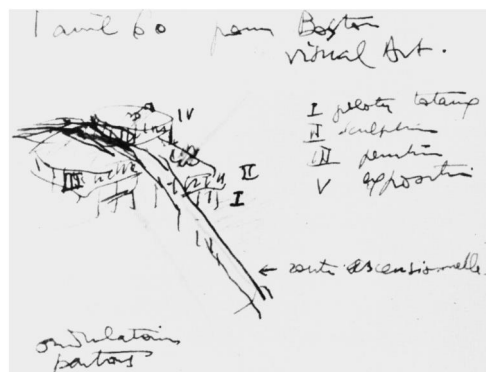 1 avril 60 pour Boston
Visual Art.
IV
I pilotis
II sculpture
III peinture
V exposition
II
I
III
← route ascensionnelle
ondulatoires
partout